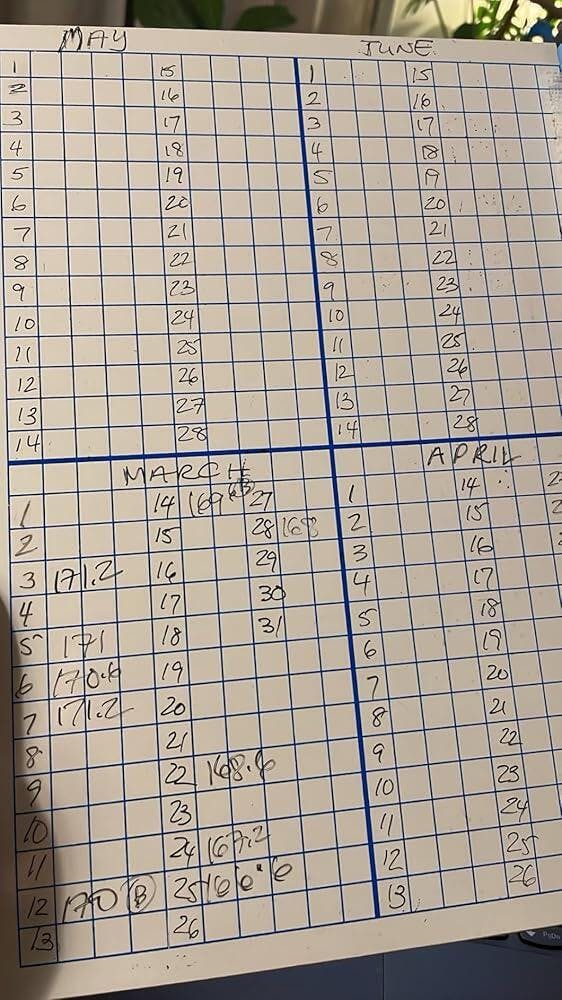 MAY JUNE
1 15 1 15
2 16 2 16
3 17 3 17
4 18 4 18
5 19 5 19
6 20 6 20
7 21 7 21
8 22 8 22
9 23 9 23
10 24 10 24
11 25 11 25
12 26 12 26
13 27 13 27
14 28 14 28
MARCH APRIL
1 14 169 27 1 14
2 15 28 168 2 15
3 171.2 16 29 3 16
4 17 30 4 17
5 171 18 31 5 18
6 170.6 19 6 19
7 171.2 20 7 20
8 21 8 21
9 22 168.6 9 22
10 23 10 23
11 24 167.2 11 24
12 170 B 25 166.6 12 25
13 26 13 26
PgDn